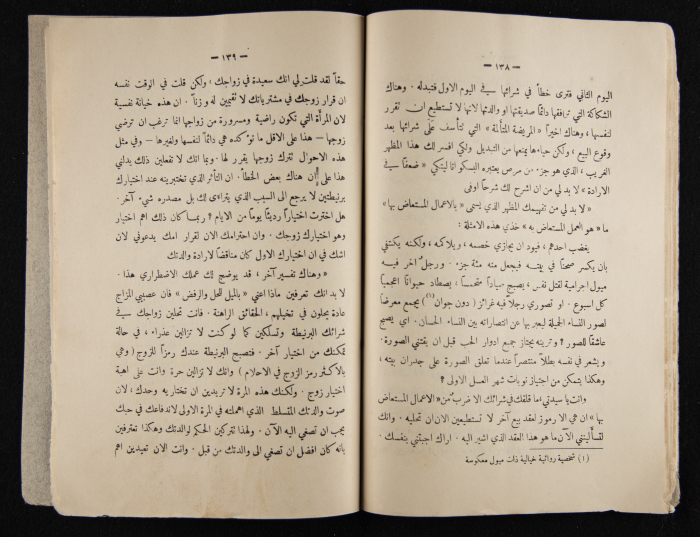 — ١٣٨ —
اليوم الثاني فترى خطأ في شرائها في اليوم الاول فتبدله . وهناك
الشكاكة التي ترافقها دائماً صديقتها او والدتها لانها لا تستطيع ان تقرر
لنفسها ، وهناك اخيراً « المريضة المتألمة » التي تتأسف على شرائها بعد
وقوع البيع ، ولكن حياءها يمنعها من التبديل ولكي افسر لك هذا المظهر
الغريب ، الذي هو جزء من مرض يعتبره البسكو اناليتكي « ضعفاً في
الارادة » لا بد لي من ان اشرح لك شرحاً اوفى
« لا بد لي من تفهيمك المظهر الذي يسمى « بالاعمال المستعاض بها »
ما « هو العمل المستعاض به » خذي هذه الامثلة :
يغضب احدهم ، فيود ان يجازي خصمه ، ويلاكمه ، ولكنه يكتفي
بان يكسر صحناً في بيته فيجعل منه مئة جزء . ورجل آخر فيه
ميول اجرامية لقتل نفس ، يصبح صياداً متحمساً ، يصطاد حيواناً اعجمياً
كل اسبوع . او تصوري رجلاً فيه غرائز ( دون جوان ⁽¹⁾ ) يجمع معرضاً
لصور النساء الجميلة ليعبر بها عن انتصاراته بين النساء الحسان . اي يصبح
عاشقاً للصور ؟ وترينه يجتاز جميع ادوار الحب قبل ان يقتني الصورة .
ويشعر في نفسه بطلاً منتصراً عندما تعلق الصورة على جدران بيته ،
وهكذا يتمكن من اجتياز نوبات شهر العسل الاولى ؟
وانت يا سيدتي ، ما قلقك في شرائك الا ضرب من « الاعمال المستعاض
بها » ان هي الا رموز لعقد بيع آخر لا تستطيعين الان ان تحليه . وانك
لتسأليني الآن ما هو هذا العقد الذي اشير اليه . اراك اجبتي بنفسك .
(١) شخصية روائية خيالية ذات ميول معكوسة
— ١٣٩ —
حقاً لقد قلت لي انك سعيدة في زواجك ، ولكن قلت في الوقت نفسه
ان قرار زوجك في مشترياتك لا تقيمين له وزناً . ان هذه خيانة نفسية
لان المرأة التي تكون راضية ومسرورة من زواجها انما ترغب ان ترضي
زوجها — هذا على الاقل ما تؤكده هي دائماً لنفسها ولغيرها — وفي مثل
هذه الاحوال تترك زوجها يقرر لها . وبما انك لا تفعلين ذلك يدلني
هذا على ان هناك بعض الخطأ . ان التأثر الذي تختبرينه عند اختيارك
برنيطتين لا يرجع الى السبب الذي يتراءى لك بل مصدره شيء آخر .
هل اخترت اختياراً رديئاً يوماً من الايام ؟ ربما كان ذلك اهم اختيار
وهو اختيارك زوجك . وان احترامك الان لقرار امك يدعوني لان
اشك في ان اختيارك الاول كان مناقضاً لارادة والدتك
« وهناك تفسير آخر ، قد يوضح لك عملك الاضطراري هذا .
لا بد انك تعرفين ماذا اعني « بالميل للحل والرفض » فان عصبيي المزاج
عادة يحلون في تخيلهم ، الحقائق الراهنة . فانت تحلين زواجك في
شرائك البرنيطة وتسلكين كما لو كنت لا تزالين عذراء ، في حالة
تمكنك من اختيار آخر . فتصبح البرنيطة عندك رمزاً للزوج ( وهي
بالاكثر رمز الزوج في الاحلام ) وانك لا تزالين حرة وانت على اهبة
اختيار زوج . ولكنك هذه المرة لا تريدين ان تختاريه وحدك ، لان
صوت والدتك المتسلط الذي اهملته في المرة الاولى لاندفاعك في حبك
يجب ان تصغي اليه الآن . ولهذا تتركين الحكم لوالدتك وهكذا تعترفين
بانه كان افضل ان تصغي الى والدتك من قبل . وانت الان تعيدين اهم